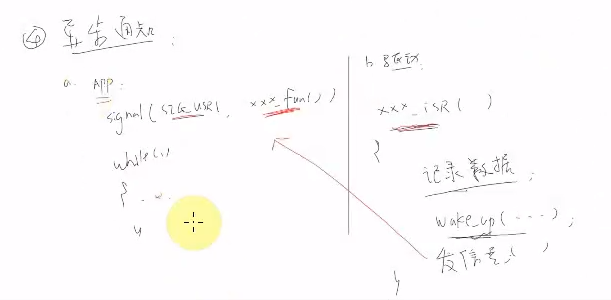 ④ 异步通知:
a. APP:
signal(SIG_USR1, xxx_fun())
while(1)
{ ...
b. 驱动:
xxx_ISR( )
{
记录数据;
wake_up(...);
发信号;
}